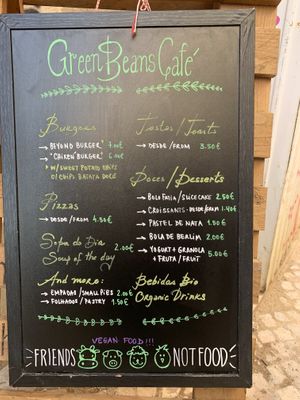 Green Beans Café
Burgers
→ BEYOND BURGER* 7.00€
→ "CHIKEN" BURGER* 6.00€
* W/ SWEET POTATO CHIPS
C/ CHIPS BATATA DOCE
Pizzas
→ DESDE/FROM 4.50€
Sopa do Dia 2.00€
Soup of the day
And more:
→ EMPADAS/SMALL PIES 2.00€
→ FOLHADOS/PASTRY 1.50€
Tostas/Toasts
→ DESDE/FROM 3.50€
Doces/Desserts
→ BOLO FATIA/SLICE CAKE 2.50€
→ CROISSANTS - DESDE/FROM 1.40€
→ PASTEL DE NATA 1.80€
→ BOLA DE BERLIM 2.00€
→ YOGURT + GRANOLA 5.00€
+ FRUTA/FRUIT
Bebidas Bio
Organic Drinks
VEGAN FOOD!!!
FRIENDS NOT FOOD